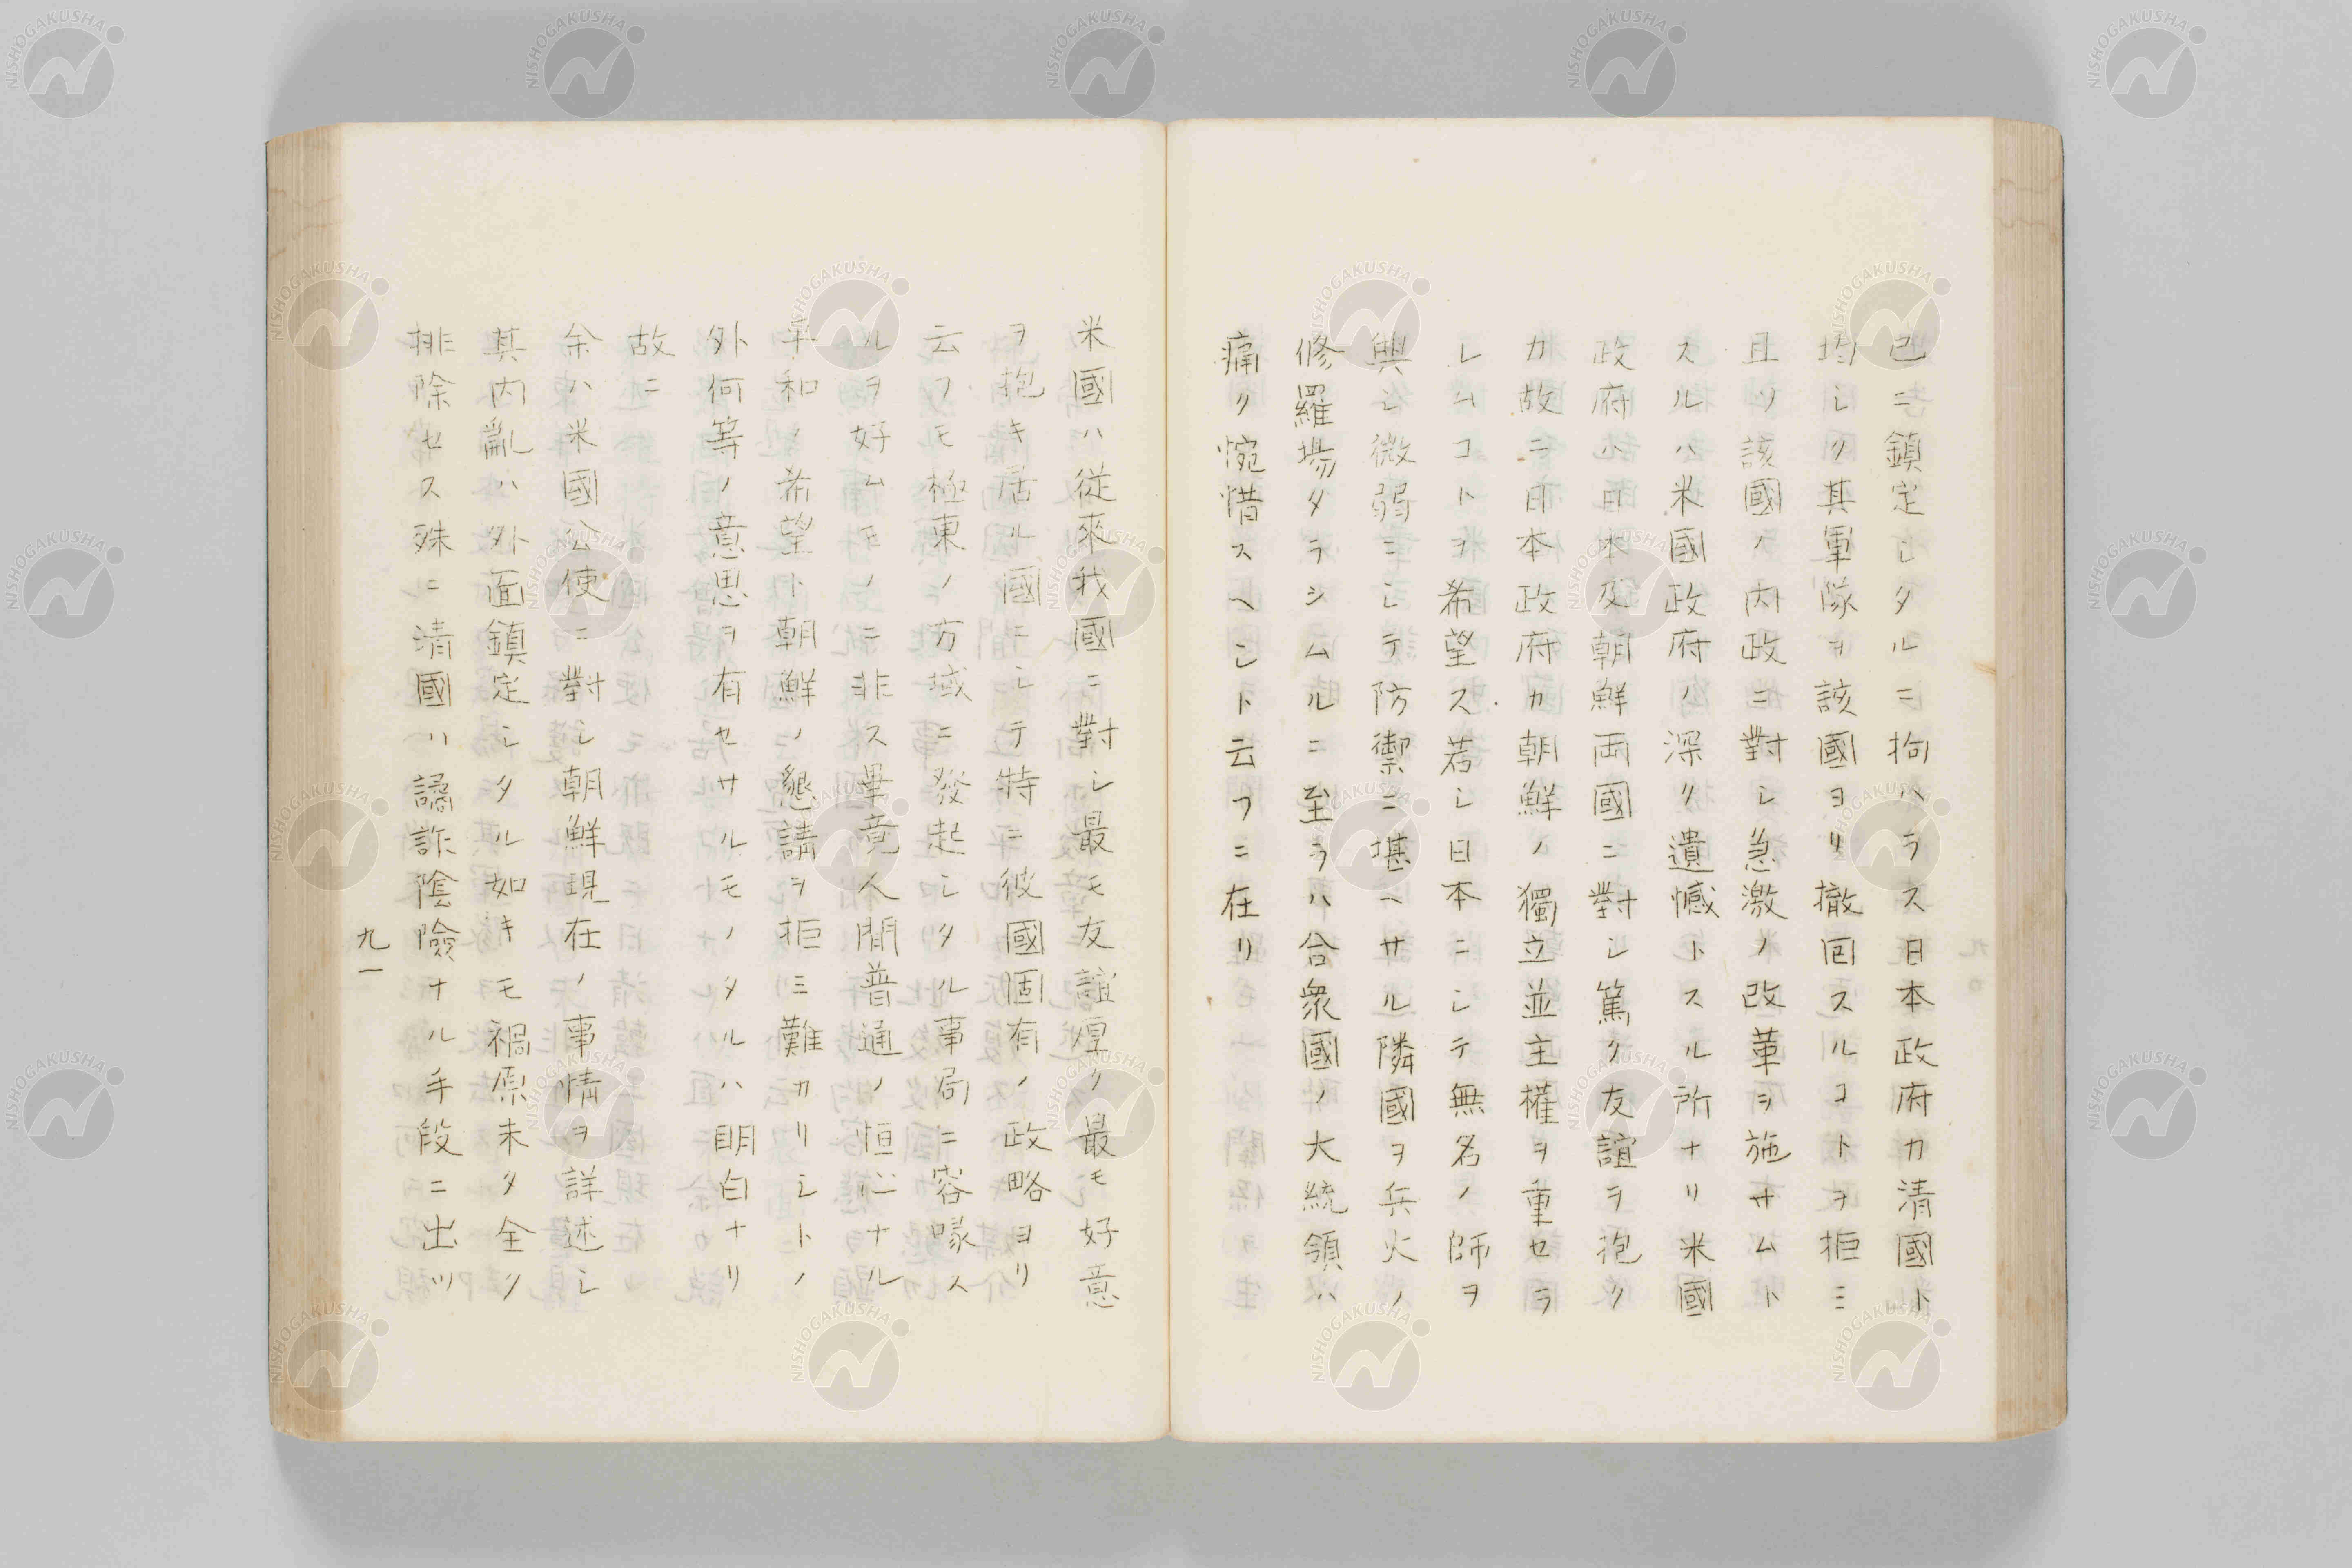 已ニ鎮定シタルニ拘ハラス日本政府カ清國ト
均シク其軍隊ヲ該國ヨリ撤回スルコトヲ拒ミ
且ツ該國ノ内政ニ對シ急激ノ改革ヲ施サムト
スルハ米國政府ノ深ク遺憾トスル所ナリ米國
政府ハ日本及朝鮮両國ニ對シ篤ク友誼ヲ抱ク
カ故ニ日本政府カ朝鮮ノ獨立並主權ヲ重セラ
レムコトヲ希望ス若シ日本ニシテ無名ノ師ヲ
興シ微弱ニシテ防禦ニ堪ヘサル隣國ヲ兵火ノ
修羅場タラシムルニ至ラハ合衆國ノ大統領ハ
痛ク惋惜スヘシト云フニ在リ
米國ハ從來我國ニ對シ最モ友誼厚ク最モ好意
ヲ抱キ居ル國ニシテ特ニ彼國固有ノ政略ヨリ
云フモ極東ノ方域ニ發起シタル事局ニ容喙ス
ルヲ好ムモノニ非ス畢竟人間普通ノ恒心ナル
平和ノ希望ト朝鮮ノ懇請ヲ拒ミ難カリシトノ
外何等ノ意思ヲ有セサルモノタルハ明白ナリ
故ニ
余ハ米國公使ニ對シ朝鮮現在ノ事情ヲ詳述シ
其内亂ハ外面鎮定シタル如キモ禍原未タ全ク
排除セス殊ニ清國ハ譎詐陰險ナル手段ニ出ツ
九一
NISHOGAKUSHA